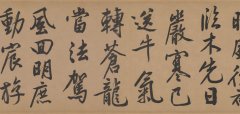 木先日
嚴寒已
送牛氣
轉蒼龍
當法駕
風回明庶
動宸游